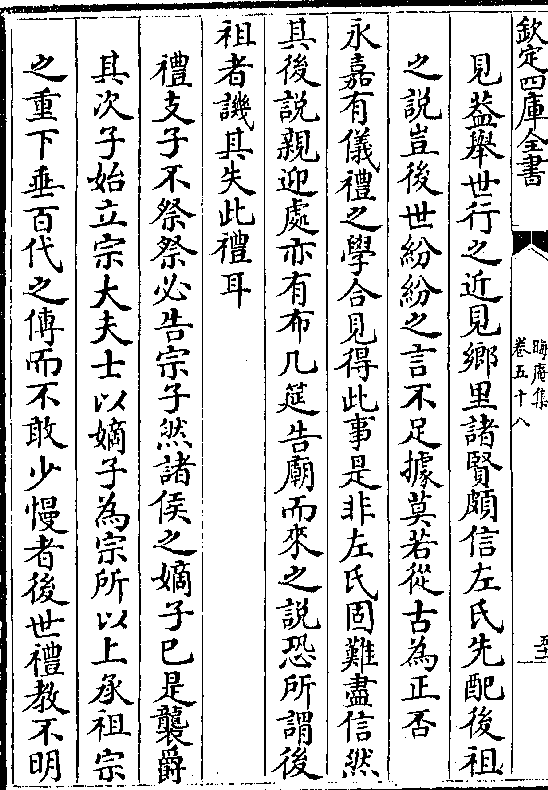 欽定四庫全書
晦庵集
卷五十八
見葢舉世行之近見鄉里諸賢頗信左氏先配後祖
之説豈後世紛紛之言不足據莫若從古為正否
永嘉有儀禮之學合見得此事是非左氏固難盡信然
其後説親迎處亦有布几筵告廟而來之説恐所謂後
祖者譏其失此禮耳
禮支子不祭祭必告宗子然諸侯之嫡子已是襲爵
其次子始立宗大夫士以嫡子為宗所以上承祖宗
之重下垂百代之傳而不敢少慢者後世禮教不明